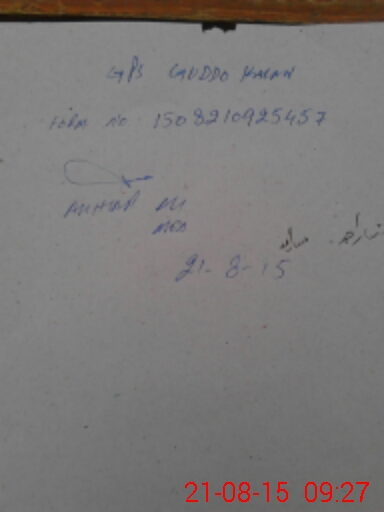 GPS GUDDO HALAN
FORM NO 1508210925457
AKHTAR ALI
MEO
21-8-15
21-08-15 09:27